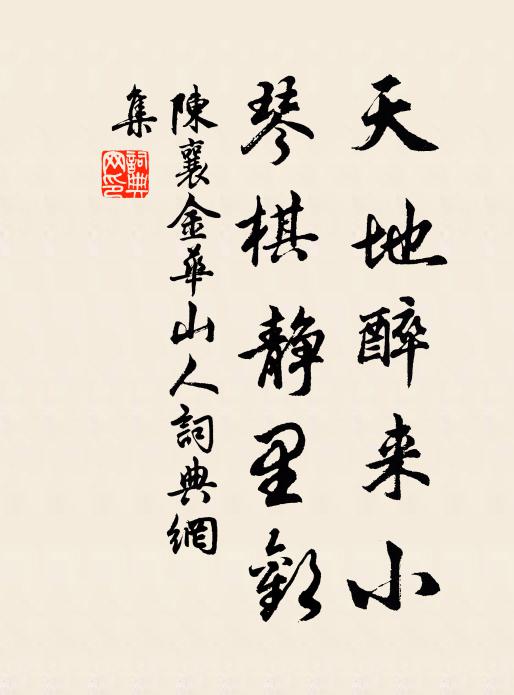 天地醉来小
琴棋静里歡
陳襄金華山人詞典網
集
詞典網印